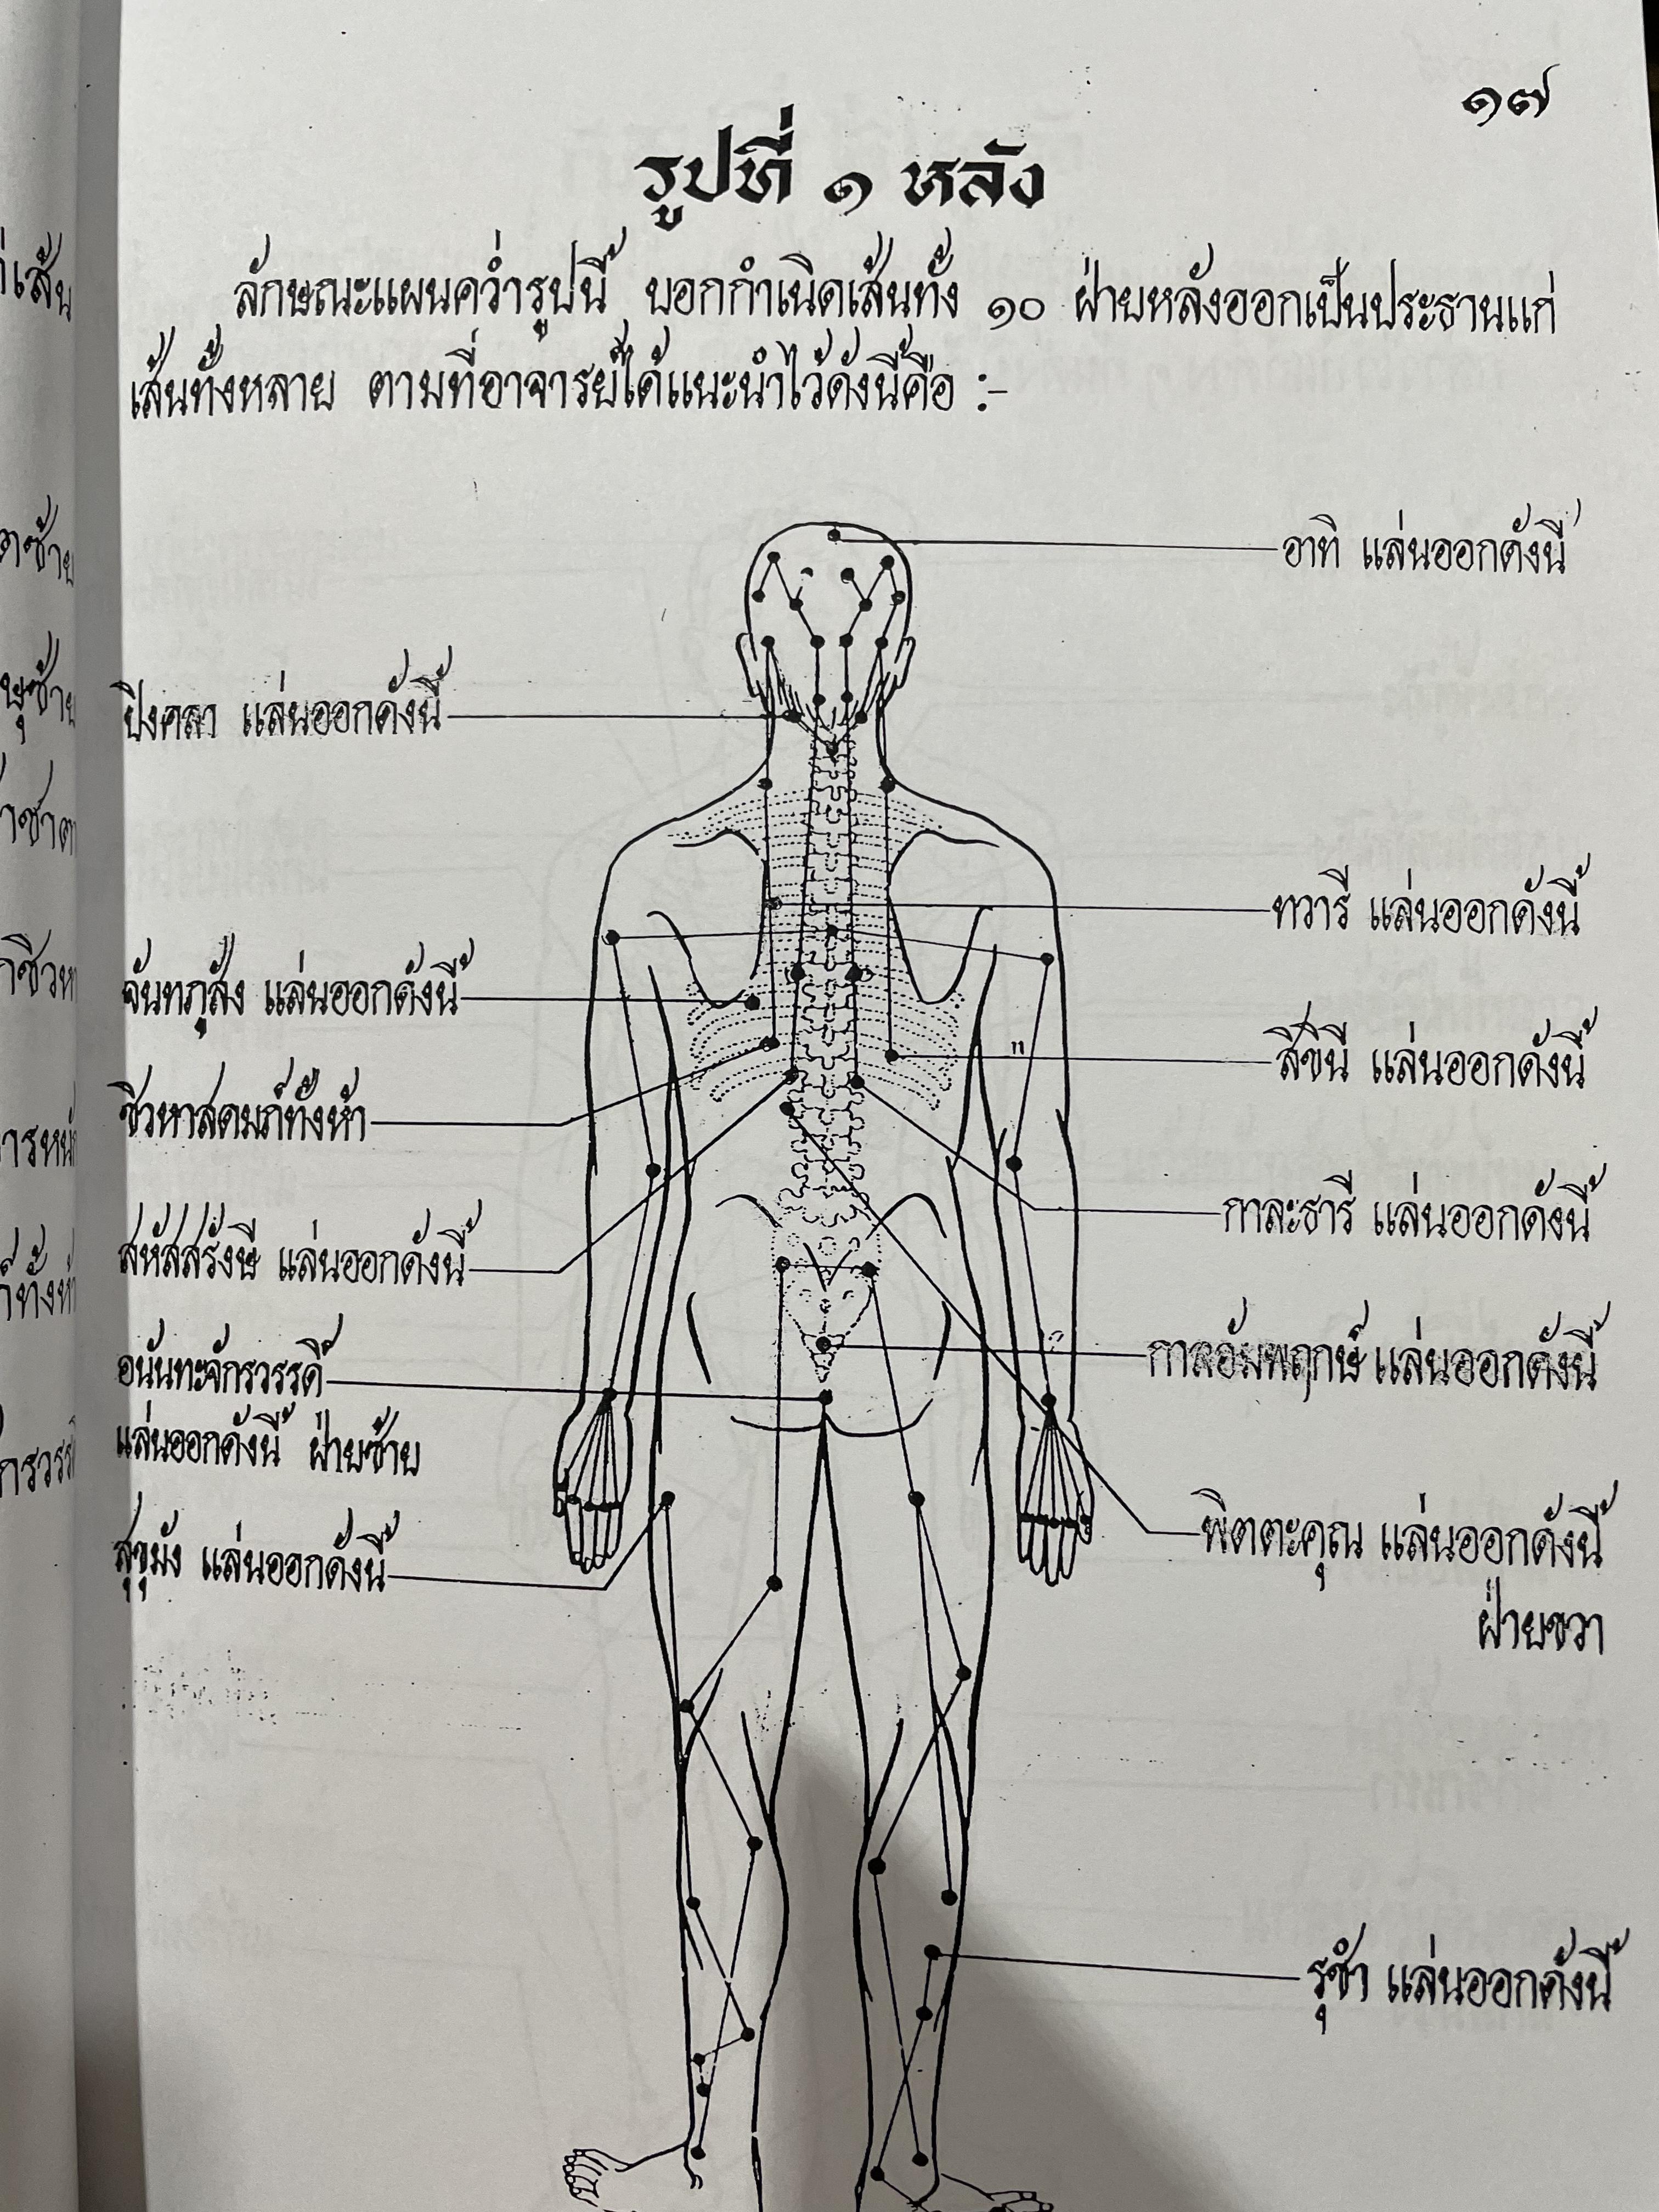 ๑๗
รูปที่ ๑ หลัง
ลักษณะแผนคว่ำรูปนี้ บอกกำเนิดเส้นทั้ง ๑๐ ฝ่ายหลังออกเป็นประธานแก่
เส้นทั้งหลาย ตามที่อาจารย์ได้แนะนำไว้ดังนี้คือ :-
อาทิ แล่นออกดังนี้
ปิงคลา แล่นออกดังนี้
ทวารี แล่นออกดังนี้
จันทภูสัง แล่นออกดังนี้
สิขินี แล่นออกดังนี้
ชิวหาสดมภ์ทั้งห้า
กาละธารี แล่นออกดังนี้
สหัสสรังษี แล่นออกดังนี้
กาลอัมพฤกษ์ แล่นออกดังนี้
อนันทะจักรวรรดิ์
แล่นออกดังนี้ ฝ่ายซ้าย
พิตตะคุณ แล่นออกดังนี้
ฝ่ายขวา
สุขุมัง แล่นออกดังนี้
รุชำ แล่นออกดังนี้